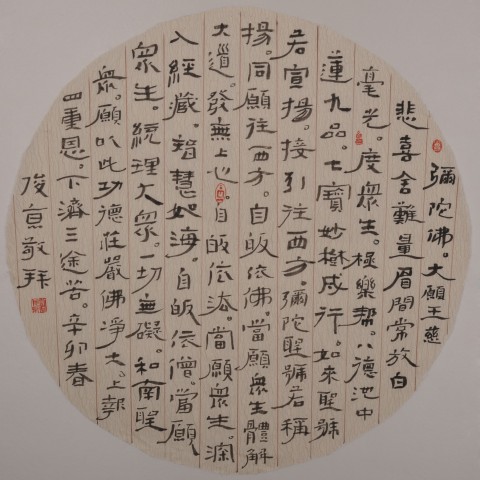 彌陀佛。大願王慈
悲喜舍難量眉間常放白
毫光。度衆生。極樂幫。八德池中
蓮九品。七寶妙樹成行。如來聖號
若宣揚。接引往西方。彌陀聖號若稱
揚。同願往西方。自皈依佛。當願衆生體解
大道。發無上心。自皈依法。當願衆生。深
入經藏。智慧如海。自皈依僧。當願
衆生。統理大衆。一切無礙。和南聖
衆。願以此功德莊嚴佛淨土。上報
四重恩。下濟三途苦。辛卯春
俊京敬拜